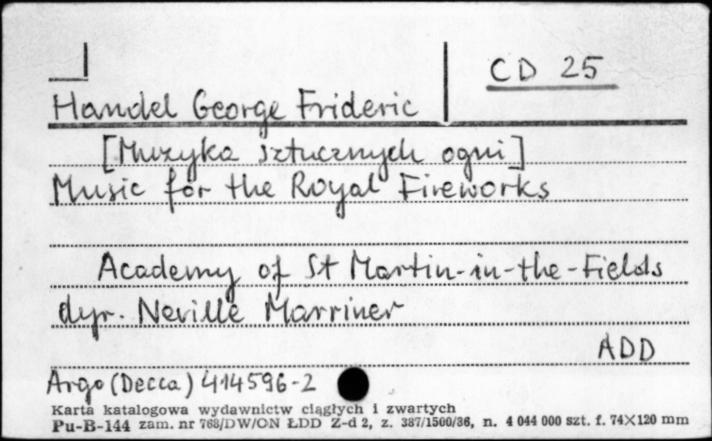 CD 25
Handel George Frideric
[Muzyka sztucznych ogni]
Music for the Royal Fireworks
Academy of St Martin-in-the-Fields
dyr. Neville Marriner
ADD
Argo (Decca) 414596-2
Karta katalogowa wydawnictw ciągłych i zwartych
Pu-B-144 zam. nr 768/DW/ON ŁDD Z-d 2, z. 387/1500/86, n. 4 044 000 szt. f. 74×120 mm